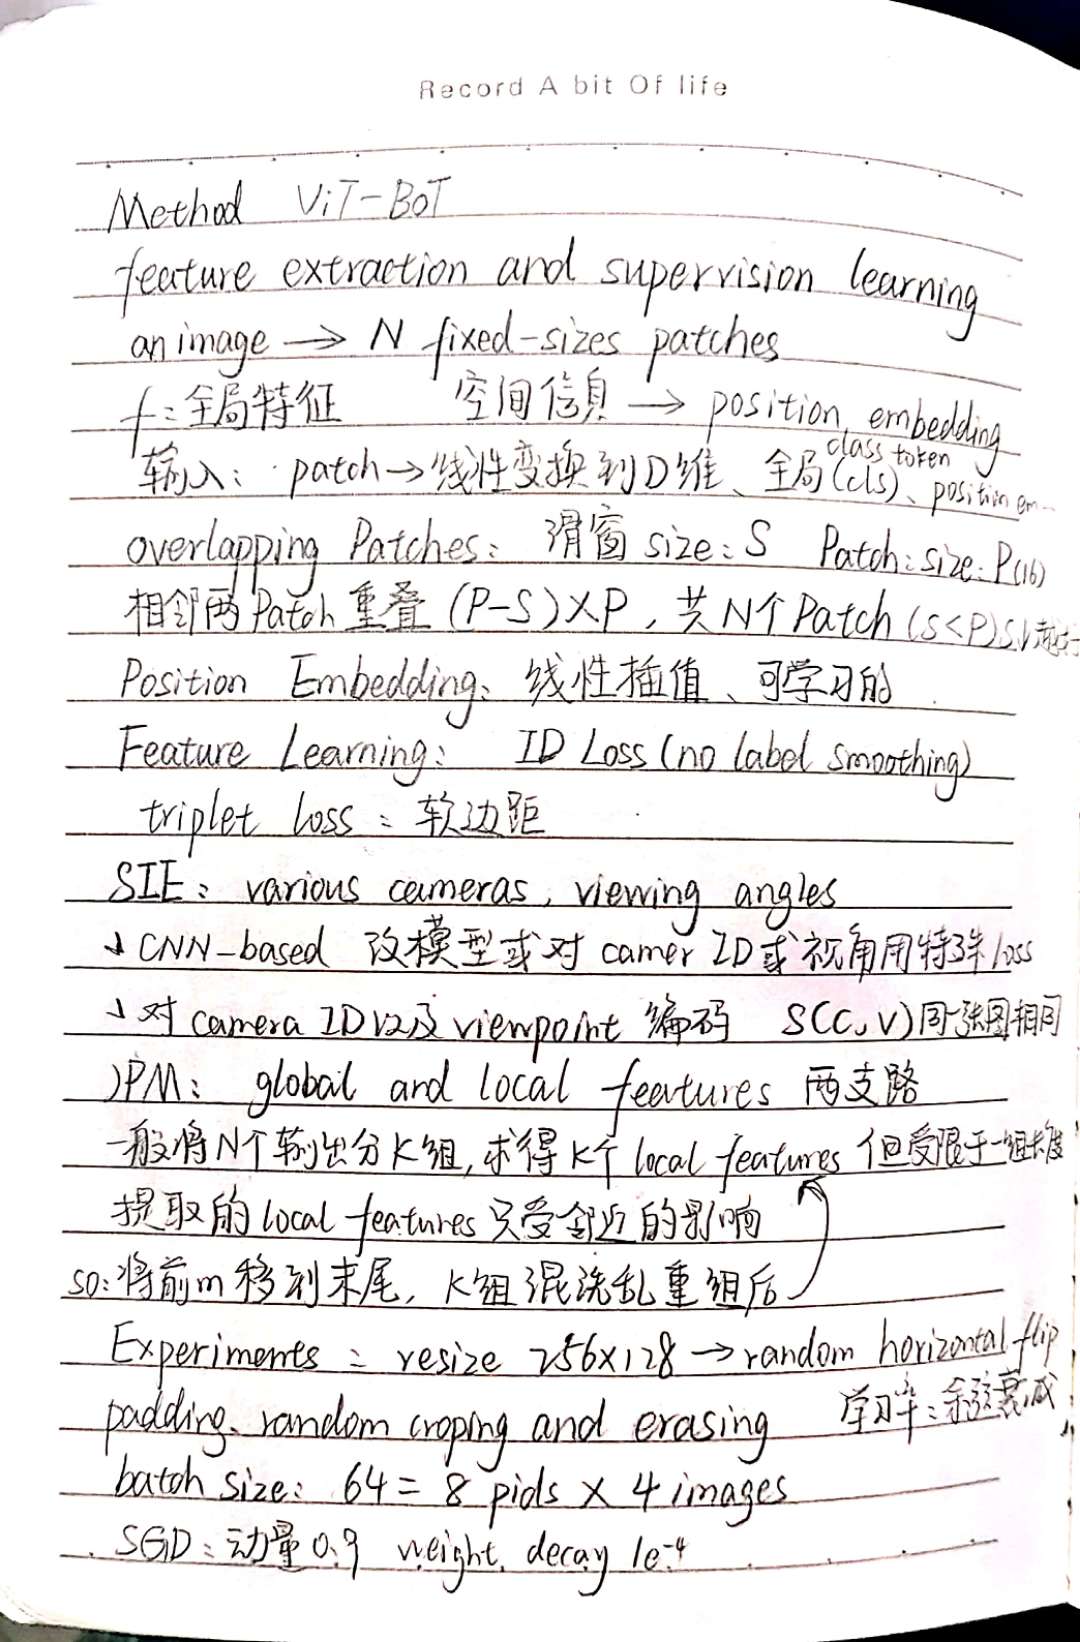 Record A bit Of life
Method ViT-BoT
feature extraction and supervision learning
an image → N fixed-sizes patches
f:全局特征 空间信息 → position embedding
class token
输入: patch→线性变换到D维、全局(cls)、position em-
overlapping Patches: 滑窗 size: S Patch: size: P(16)
相邻两Patch重叠 (P-S)×P, 共N个Patch (S<P)
Position Embedding: 线性插值、可学习的
Feature Learning: ID Loss (no label smoothing)
triplet loss: 软边距
SIE: various cameras, viewing angles
CNN-based 改模型或对 camer ID或视角用特殊loss
对 camera ID以及 viewpoint 编码 S(C,V)同一张图相同
JPM: global and local features 两支路
一般将N个输出分K组,求得K个local features 但受限于一组长度
提取的local features只受邻近的影响
so:将前m移到末尾, K组混洗乱重组后
Experiments: resize 256×128 → random horizontal flip
padding, random croping and erasing 学习率:余弦衰减
batch size: 64 = 8 pids × 4 images
SGD:动量0.9 weight decay 1e-4